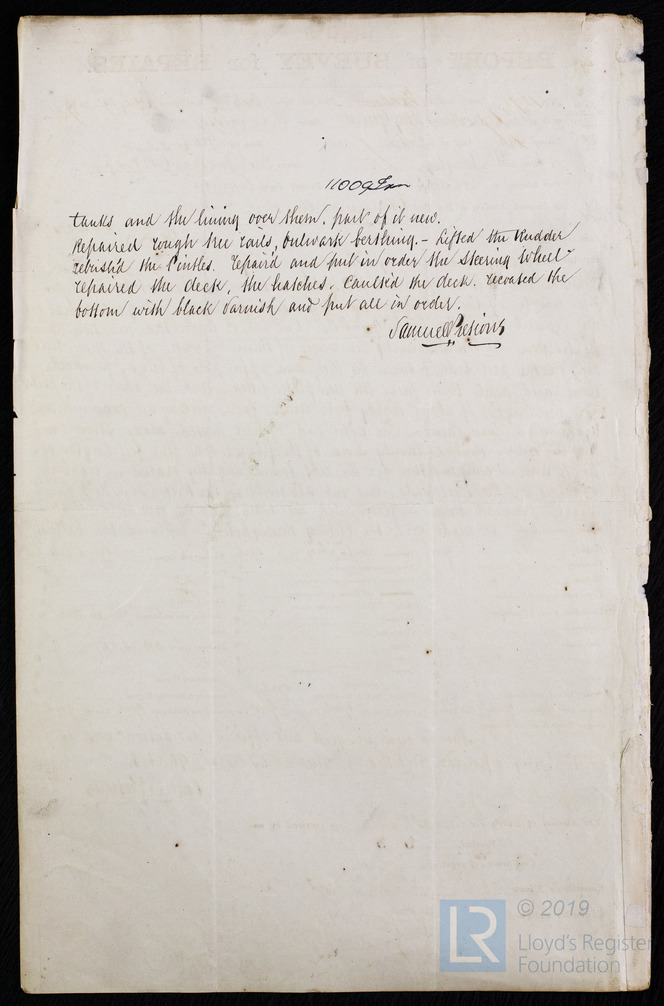 11009 Iron
tanks and the lining over them. part of it new.
Repaired rough tree rails, bulwark berthing. - Lifted the Rudder
rebush'd the Pintles. repair'd and put in order the Steering Wheel -
repaired the deck, the hatches. Caulk'd the deck. recoated the
bottom with black varnish and put all in order.
Samuel Presious
LR © 2019
Lloyd's Register
Foundation